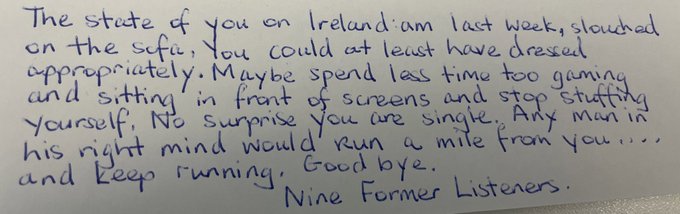 The state of you on Ireland:am last week, slouched
on the sofa. You could at least have dressed
appropriately. Maybe spend less time too gaming
and sitting in front of screens and stop stuffing
yourself. No surprise you are single. Any man in
his right mind would run a mile from you....
and keep running. Good bye.
Nine Former Listeners.